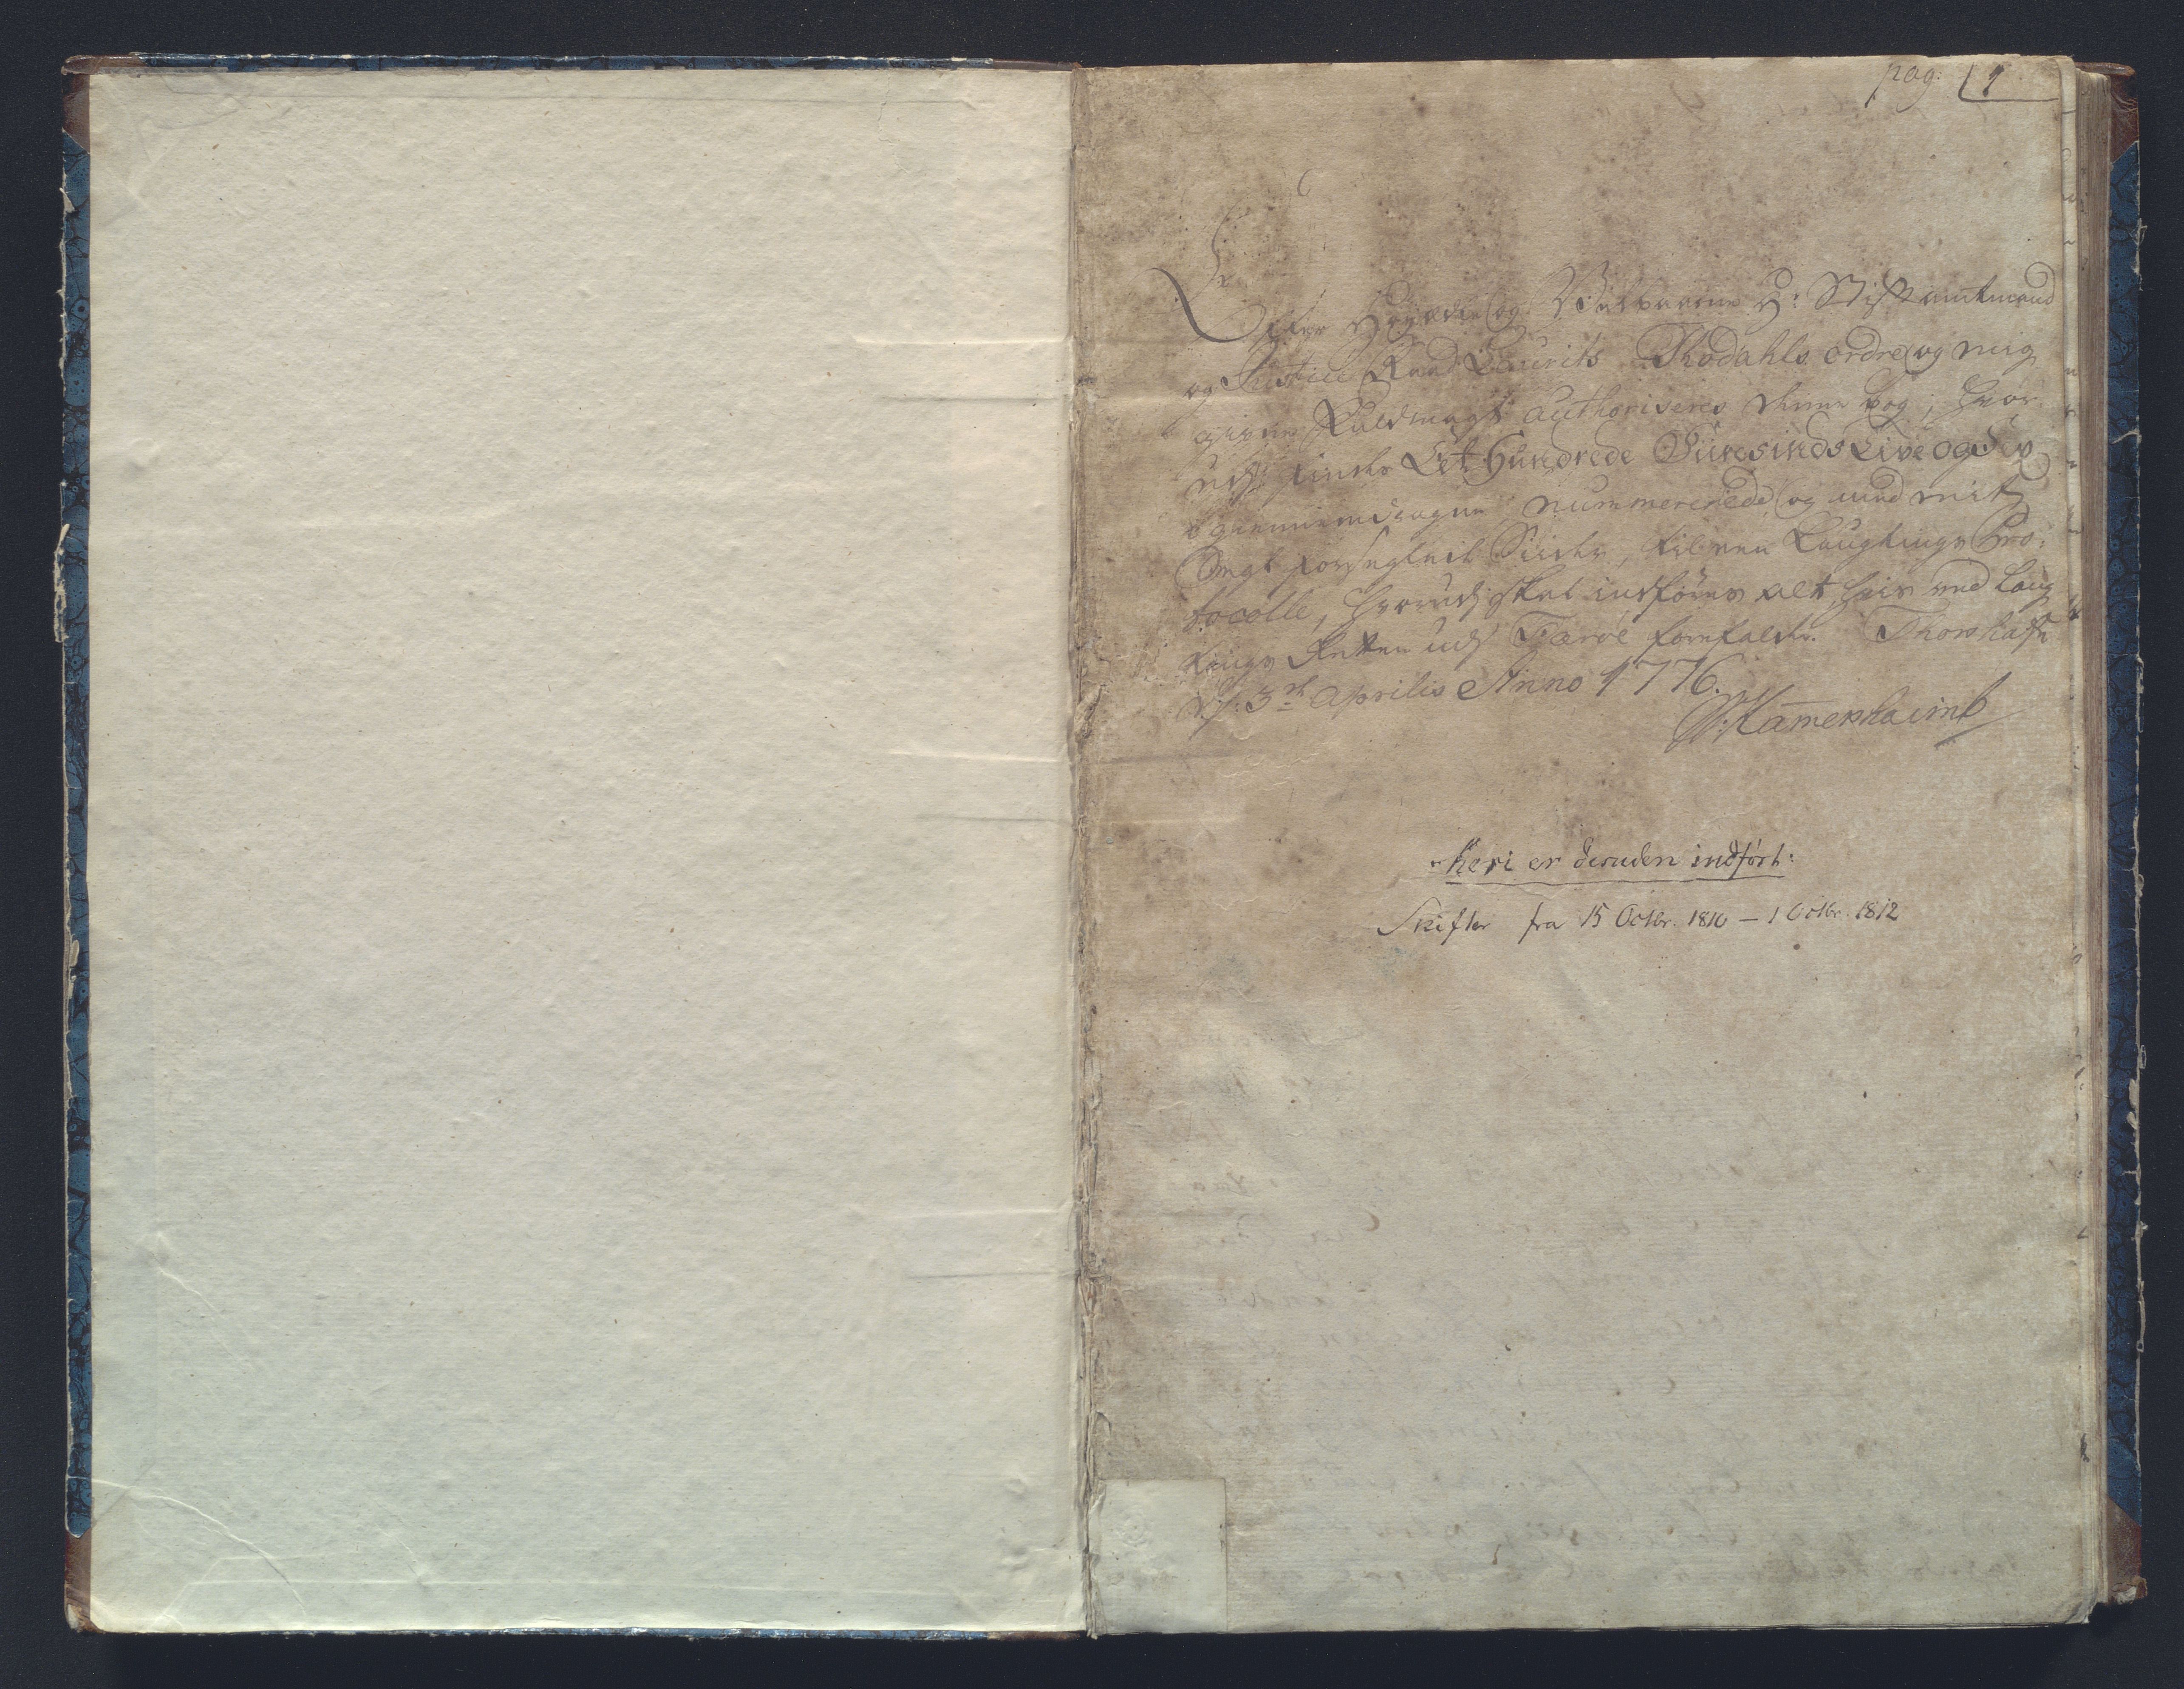 pag: 1
Efter Høyædle og Velbaarne H: Stiftamtmand
og Justice Raad Laurits Thodahls ordre og mig
given Fuldmagt authoriseres denne bog, hvor
udj findes Et Hundrede Siive og
igiennemdragne nummererede og med mit
Segl forseglede Siider, til een Laugtings Pro:
tocolle, hvorudj skal indføres alt, hvis ved Laug
tings Retten udj Færøe forefalder. Thorshafn
d: 3de Aprilis Anno 1776.
Hamershaimb
Heri er desuden indført:
Skifter fra 15 Octbr. 1810 — 1 Octbr. 1812